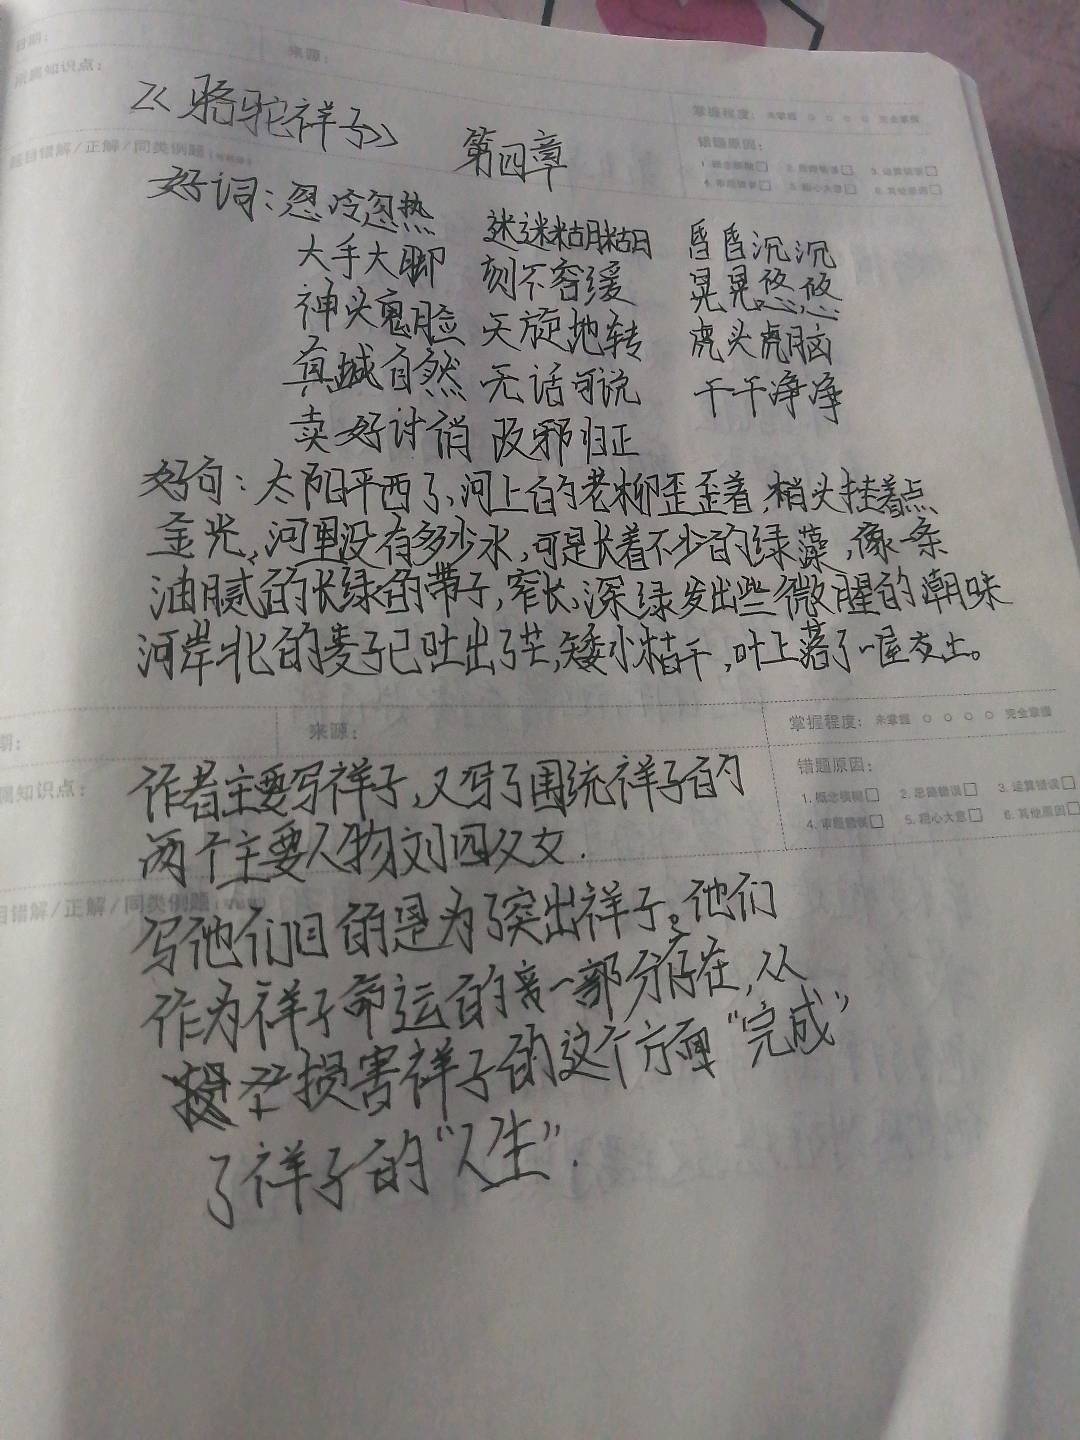 日期：
来源：
所属知识点：
掌握程度： 未掌握 ○ ○ ○ ○ 完全掌握
错题原因：
题目错解/正解/同类例题
1. 概念模糊□ 2. 思路错误□ 3. 运算错误□
4. 审题错误□ 5. 粗心大意□ 6. 其他原因□
《骆驼祥子》 第四章
好词：忽冷忽热 迷迷糊糊 昏昏沉沉
大手大脚 刻不容缓 晃晃悠悠
神头鬼脸 天旋地转 虎头虎脑
真诚自然 无话可说 干干净净
卖好讨俏 改邪归正
好句：太阳平西了，河上的老柳歪歪着，梢头挂着点
金光，河里没有多少水，可是长着不少的绿藻，像一条
油腻的长绿的带子，窄长，深绿发出些微腥的潮味
河岸北的麦子已吐出了芒，矮小枯干，叶上落了一层灰土。
期：
来源：
掌握程度： 未掌握 ○ ○ ○ ○ 完全掌握
属知识点：
错题原因：
1. 概念模糊□ 2. 思路错误□ 3. 运算错误□
4. 审题错误□ 5. 粗心大意□ 6. 其他原因□
目错解/正解/同类例题
作者主要写祥子，又写了围绕祥子的
两个主要人物刘四父女.
写他们目的是为了突出祥子。他们
作为祥子命运的一部分存在，从
损害祥子的这个方面“完成”
了祥子的“人生”.